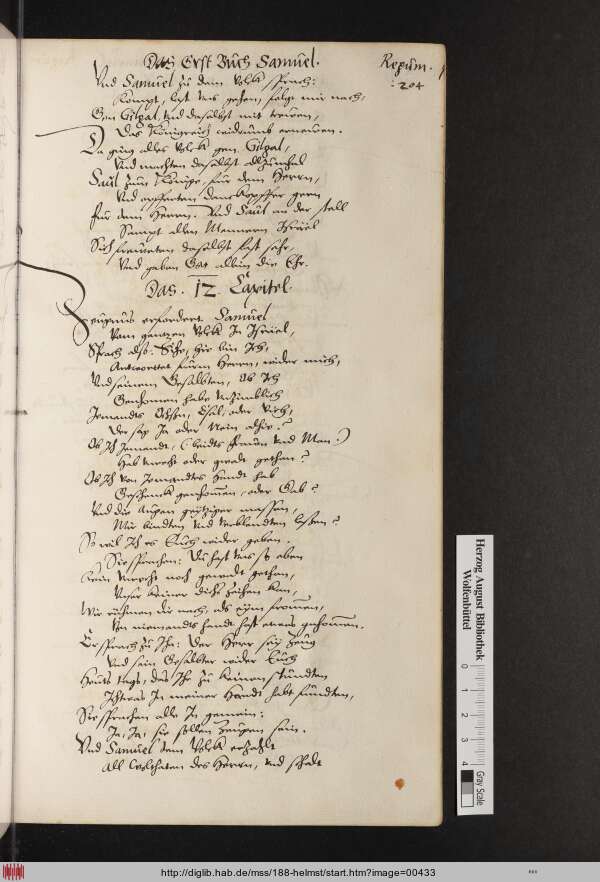 Das Erst Buch Samuel. Regum.
204
Vnd Samuel zu dem Volck sprach:
Kompt, last vns gehen, folge mir nach,
Gen Gilgal, vnd daselbst mit treuen,
Das Königreich widrumb erneuren.
Da ging alles Volck gen Gilgal,
Vnd machten daselbst allzumhal
Saul zum Könige, für dem Herrn,
Vnd opfferten danckopffer gern
Für dem Herrn. Vnd Saul an der stell
Sampt allen Mennern Israel
Sich freueten daselbst fast sehr,
Vnd gaben Got allein die Ehr.
Das. 12 Capitel.
Zeugnus erfordert Samuel
Vom gantzen Volck In Israel,
Sprach also: Sihe, hie bin Ich,
Antwortet fürm Herrn, wider mich,
Vnd seinem Gesalbten, Ob Ich
Genhomen habe vnzimblich
Jemandts Ochsen, Esel, oder Vieh,
Der sag Ja oder Nein alhie.?
Ob Ich Jemandt, (beidts frauen vnd Man.)
Hab vnrecht oder gewalt gethan?
Ob Ich von Jemandtes handt hab
Geschenck genhommen, oder Gab?
Vnd die Augen
Mir blendten vnd verblendten lassen?
So wil Ich es Euch wider geben.
Sie sprachen: Du hast vns so eben
Kein vnrecht noch gewalt gethan,
Vnser keiner
Wir rühmen dir nach, als eym frommen,
Von niemandts handt hast etwas genhommen.
Er sprach zu Ihn: Der Herr sey Zeug
Vnd sein Gesalbter wider Euch
Heuts tags, das Ihr zu keinen stundten
Ichtwas In meiner Handt habt fundten,
Sie sprachen alle In gemein:
Ja, Ja, sie sollen Zeugen sein.
Vnd Samuel dem Volck erzahlt
All wolthaten des Herrn, vnd schalt
Herzog August Bibliothek
Wolfenbüttel
0 1 2 3 4
Gray Scale
http://diglib.hab.de/mss/188-helmst/start.htm?image=00433